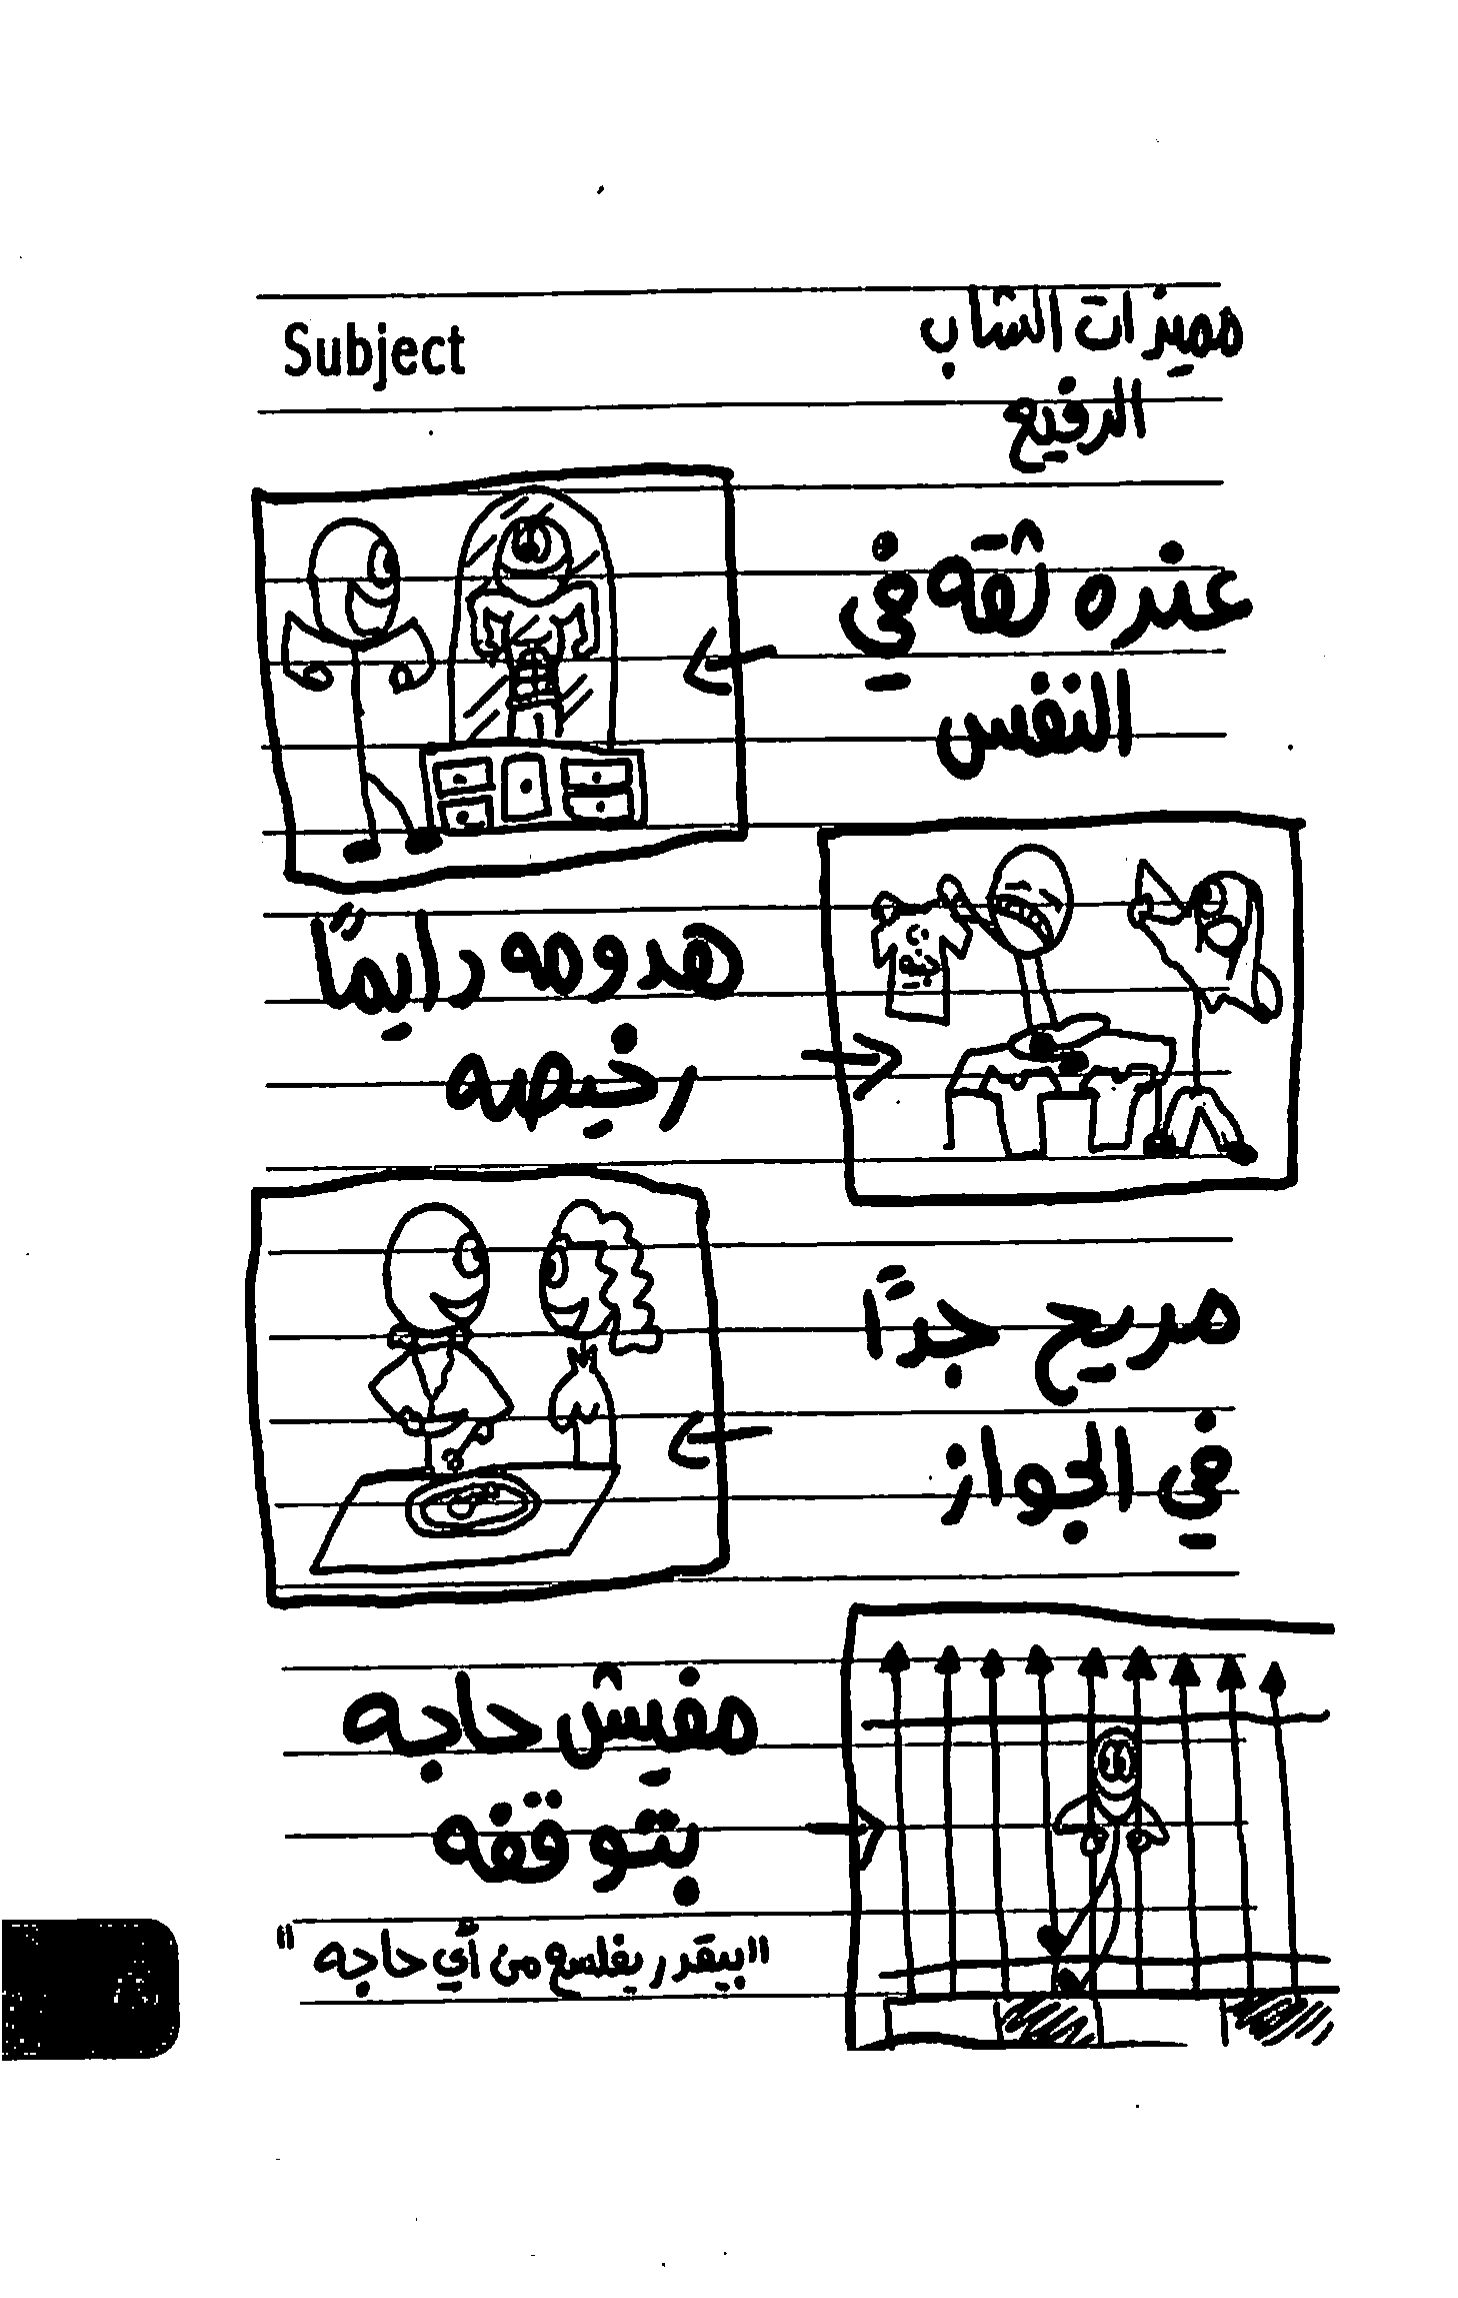 Subject
مميزات الشاب
الرفيع
عنده ثقه في
النفس
هدومه دايمًا
رخيصه
جنيه
مريح جدًا
في الجواز
مفيش حاجه
بتوقفه
"بيقدر يفلسع من أي حاجه"